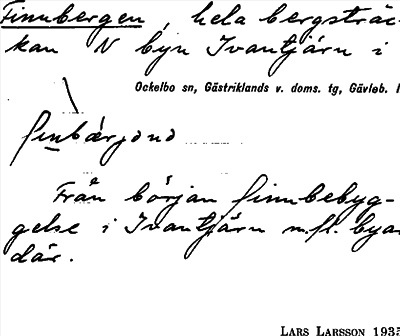 Finnbergen, hela bergsträc-
kan N byn Ivantjärn i
Ockelbo sn, Gästriklands v. doms. tg, Gävleb. l
Från början finnbebyg-
gelse i Ivantjärn m.fl. byar
där.
LARS LARSSON 1935